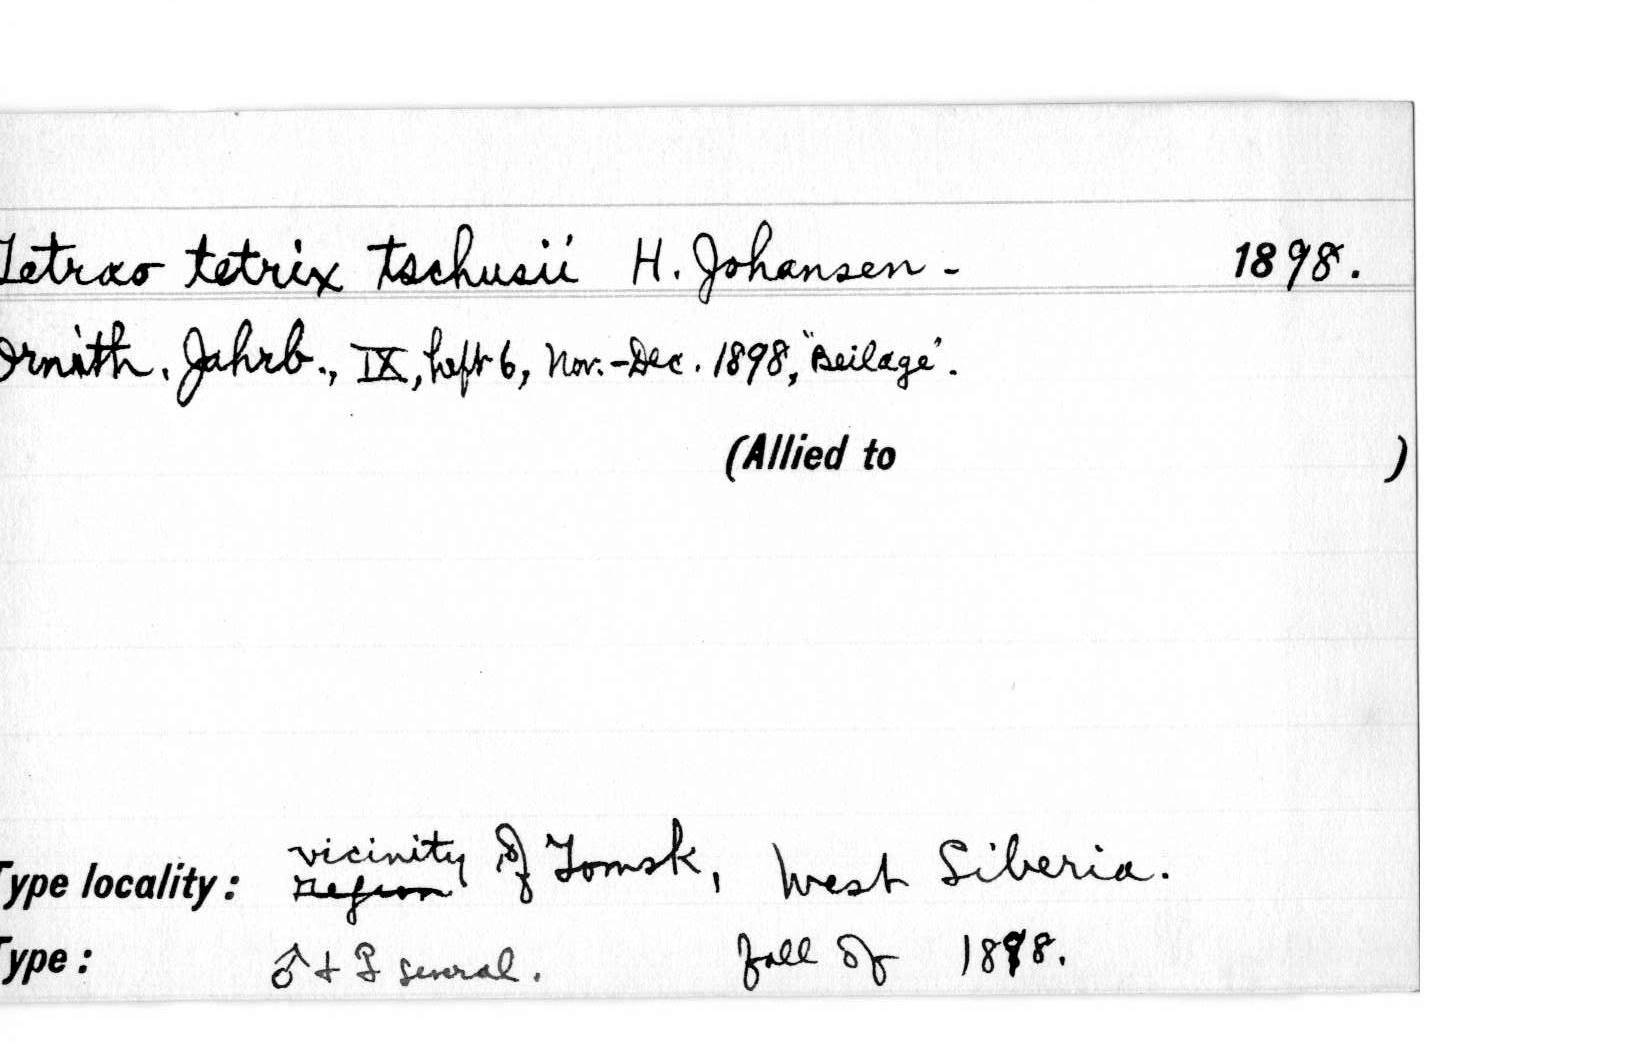 Tetrao tetrix tschusii H. Johansen - 1898.
Ornith. Jahrb., IX, heft 6, Nov.-Dec. 1898, "Beilage".
(Allied to )
vicinity
Type locality: Region of Tomsk, West Siberia.
Type: ♂ + ♀ several. fall of 1898.